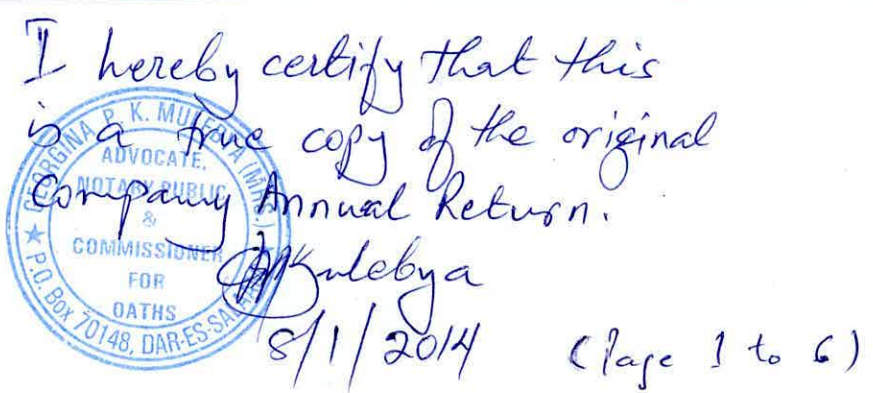 I hereby certify that this
is a true copy of the original
Company Annual Return.
GPKMulebya
8/1/2014 (Page 1 to 6)
GEORGINA P. K. MULEBYA (MRS.)
ADVOCATE,
NOTARY PUBLIC
&
COMMISSIONER
FOR
OATHS
P.O. Box 70148, DAR-ES-SALAAM